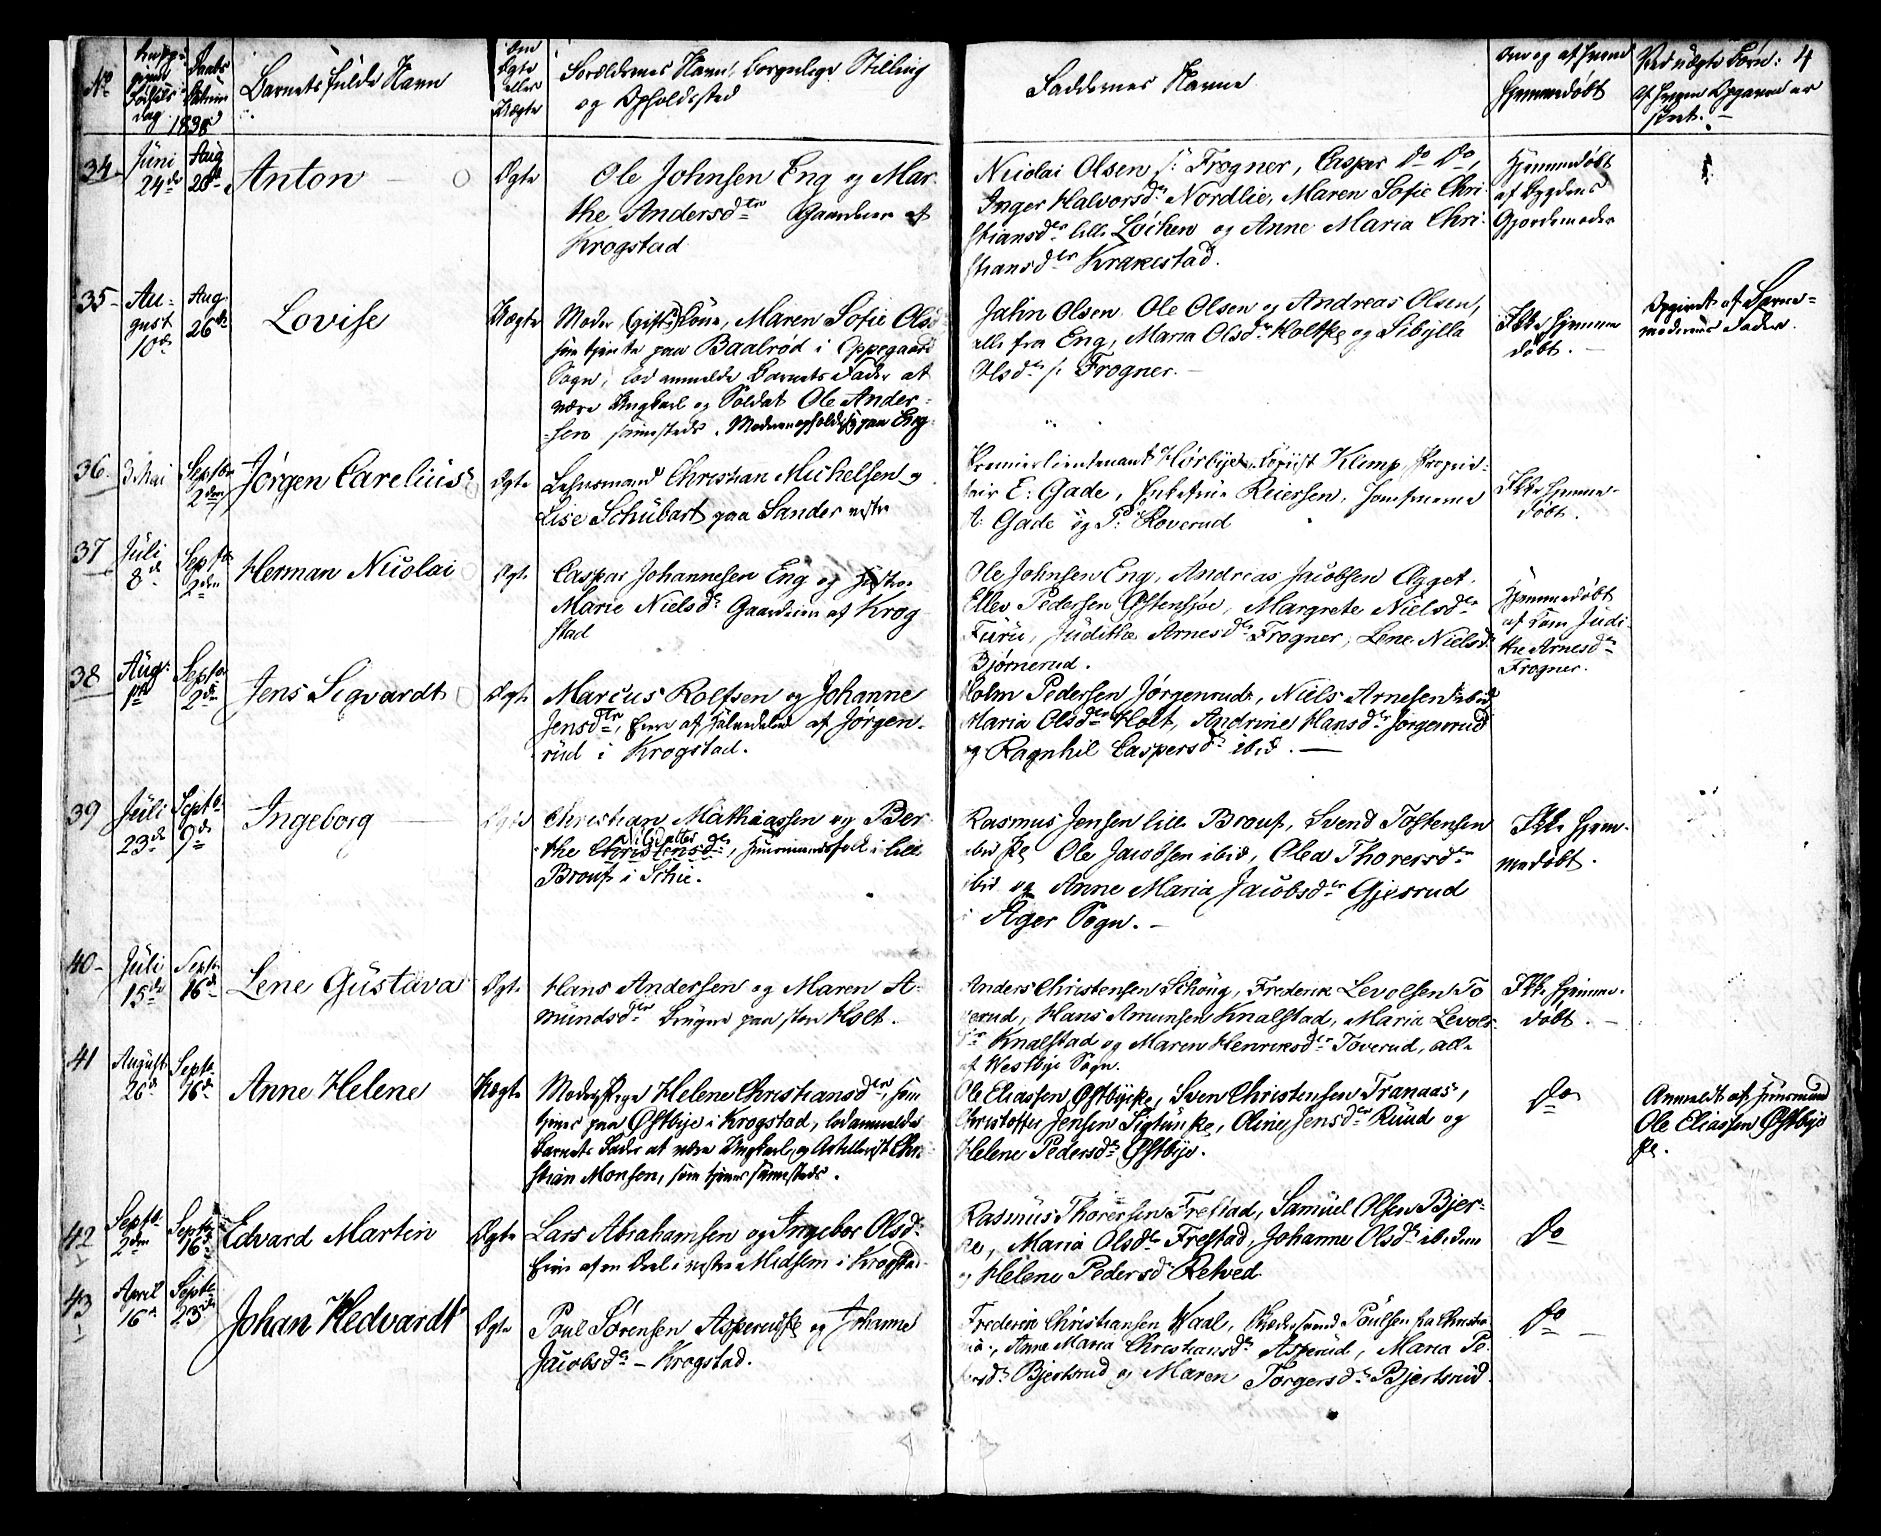 No
Opgiven Fødsels Dag
Daabs Datum
1838
Barnets fulde Navn
Om Ægte eller Uægte
Forældrenes Navn, borgerlige Stilling
og Opholdssted
Faddernes Navne
Om og af hvem
hjemmedøbt
Ved uægte Børn:
af hvem Opgaven er
skeet.
4
34
Juni
24de
Aug
26de
Anton
Ægte
Ole Johnsen Eng og Mar
the Andersdtr Gaardeier af
Krogstad
Nicolai Olsen s: Frogner, Caspar Do Do,
Inger Halvorsdr Nordlie, Maren Sofie Chri
stiansdr lille Løiken og Anne Maria Chri
stiansdtr Krakestad.
Hjemmedøbt
af Bygdens
Gjordemoder
35
Au-
gust
10de
Aug.
26de
Lovise
Uægte
Moder (gift) Kone, Maren Sofie Ols
som tjente paa Baalrød i Oppegaard
Sogn, lod anmelde Barnets Fader at
være Ungkarl og Soldat Ole Ander-
sen samesteds. Moderen opholder sig paa Eng
Jahn Olsen, Ole Olsen og Andreas Olsen,
alle fra Eng, Maria Olsdr Holt og Sibylla
Olsdr s: Frogner.
Ikke hjemme
døbt.
Opgivet af Barne-
moderens Fader.
36.
3 Mai
Septbr
2den
Jørgen Carelius
Ægte
Lehnsmand Christian Michelsen og
Lise Schubart paa Sander vestre
Premierlieutenant Hørbye, Copist Klemp, Proprie-
tair E: Gade, Enkefrue Reiersen, Jomfruerne
A: Gade og P: Roverud
Ikke hjemme-
døbt.
37
Juli
8de
Septbr
2den
Herman Nicolai
Ægte
Caspar Johannesen Eng og Hustru
Marie Nielsdr Gaardeier af Krog
stad
Ole Johnsen Eng, Andreas Jacobsen Agget,
Ellev Pedersen Østensjøe, Margrete Nielsdr
Furu, Judithe Arnesdr Frogner, Lene Nielsd
Bjørnerud.
Hjemmedøbt
af Jom Judi
the Arnesdr
Frogner.
38
Aug:
1ste
Septbr
2de
Jens Sigvardt
Ægte
Marcus Rolfsen og Johanne
Jensdtr, Eier af Halvdelen af Jørgen-
rud i Krogstad.
Holm Pedersen Jørgenrud, Niels Arnesen ibid
Maria Olsdtr Holt, Andrine Hansdr Jørgenrud
og Ragnhil Caspersdr ibid.
39
Juli
23de
Septbr
9de
Ingeborg
Ægte
Christian Mathiassen og Ber
the Christensdr, Huusmandsfolk i lille
Brouss i Schie.
Rasmus Jensen lille Brouss, Svend Tostensen
ibid Ole Jacobsen ibid, Olea Thorersdr
ibid og Anne Maria Jacobsdr Gjesrud
i Ager Sogn.
Ikke hjem-
medøbt.
40
Juli
15de
Septbr
16de
Lene Gustava
Ægte
Hans Andersen og Maren A-
mundsdtr Brugere paa store Holt.
Anders Christensen Schoug, Frederik Levolsen To
verud, Hans Amunsen Knalstad, Maria Levols
dtr Knalstad og Maren Henriksdr Toverud, alle
af Westbye Sogn.
Ikke hjemme-
døbt.
41
August
26de
Septbr
16de
Anne Helene
Uægte
Moder, Pige Helene Christiansdtr, som
tjener paa Østbye i Krogstad, lod anmelde
Barnets Fader at være Ungkarl og Artillerist Chri-
stian Monsen, som tjener samesteds.
Ole Eliassen Østbye, Sven Christensen Tranaas,
Christoffer Jensen Sigtun, Oline Jensdr Ruud og
Helene Pedersdr Østbye.
Do
Anmeldt af Huusmand
Ole Eliassen Østbye
42
Septbr
2den
Septbr
16de
Edvard Martin
Ægte
Lars Abrahamsen og Ingebor Olsdr
Eier af en Deel i vestre Midsem i Krogstad
Rasmus Thorersen Frestad, Samuel Olsen Bjer-
ke, Maria Olsdr Frestad, Johanne Olsdr ibidem
og Helene Pedersdr Retved
Do
43
April
16
Septbr
23de
Johan Hedvardt
Ægte
Poul Sørensen Asperud og Johanne
Jacobsdr Krogstad.
Frederik Christiansen Waal, Poulsen fra Christia
nia, Anne Maria Christiansdr Asperud, Maria Pe
dersdr Bjertsrud og Maren Torgersdr Bjertsrud.
Do